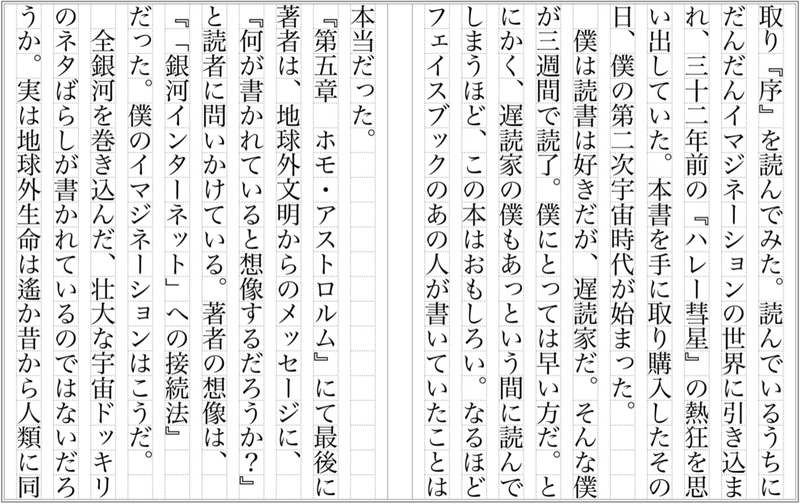 取り『序』を読んでみた。読んでいるうちに
だんだんイマジネーションの世界に引き込ま
れ、三十二年前の『ハレー彗星』の熱狂を思
い出していた。本書を手に取り購入したその
日、僕の第二次宇宙時代が始まった。
　僕は読書は好きだが、遅読家だ。そんな僕
が三週間で読了。僕にとっては早い方だ。と
にかく、遅読家の僕もあっという間に読んで
しまうほど、この本はおもしろい。なるほど
フェイスブックのあの人が書いていたことは
本当だった。
『第五章　ホモ・アストロルム』にて最後に
著者は、地球外文明からのメッセージに、
『何が書かれていると想像するだろうか？』
と読者に問いかけている。著者の想像は、
『「銀河インターネット」への接続法』
だった。僕のイマジネーションはこうだ。
　全銀河を巻き込んだ、壮大な宇宙ドッキリ
のネタばらしが書かれているのではないだろ
うか。実は地球外生命は遙か昔から人類に同